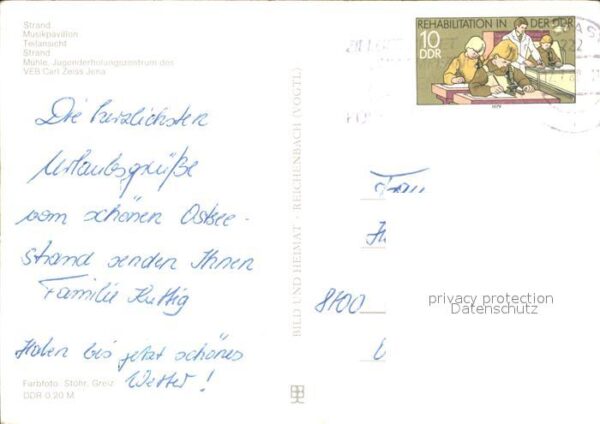 Strand
Musikpavillon
Teilansicht
Strand
Mühle, Jugenderholungszentrum des
VEB Carl Zeiss Jena
Die herzlichsten
Urlaubsgrüße
vom schönen Ostsee-
strand senden Ihnen
Familie Huttig
Haben bis jetzt schönes
Wetter!
Farbfoto: Stöhr, Greiz
DDR 0,20 M
BILD UND HEIMAT · REICHENBACH (VOGTL)
REHABILITATION IN DER DDR
10
DDR
1979
Frau
8100
privacy protection
Datenschutz